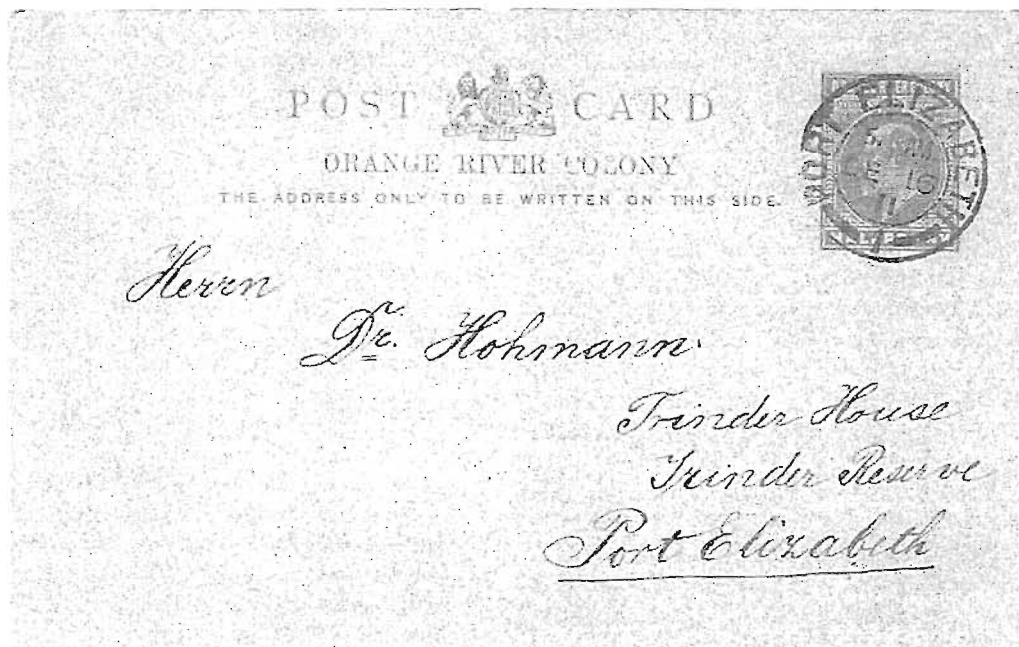 POST CARD
ORANGE RIVER COLONY
THE ADDRESS ONLY TO BE WRITTEN ON THIS SIDE.
PORT ELIZABETH
16
11
Herrn
Dr. Hohmann.
Trinder House
Trinder Reserve
Port Elizabeth